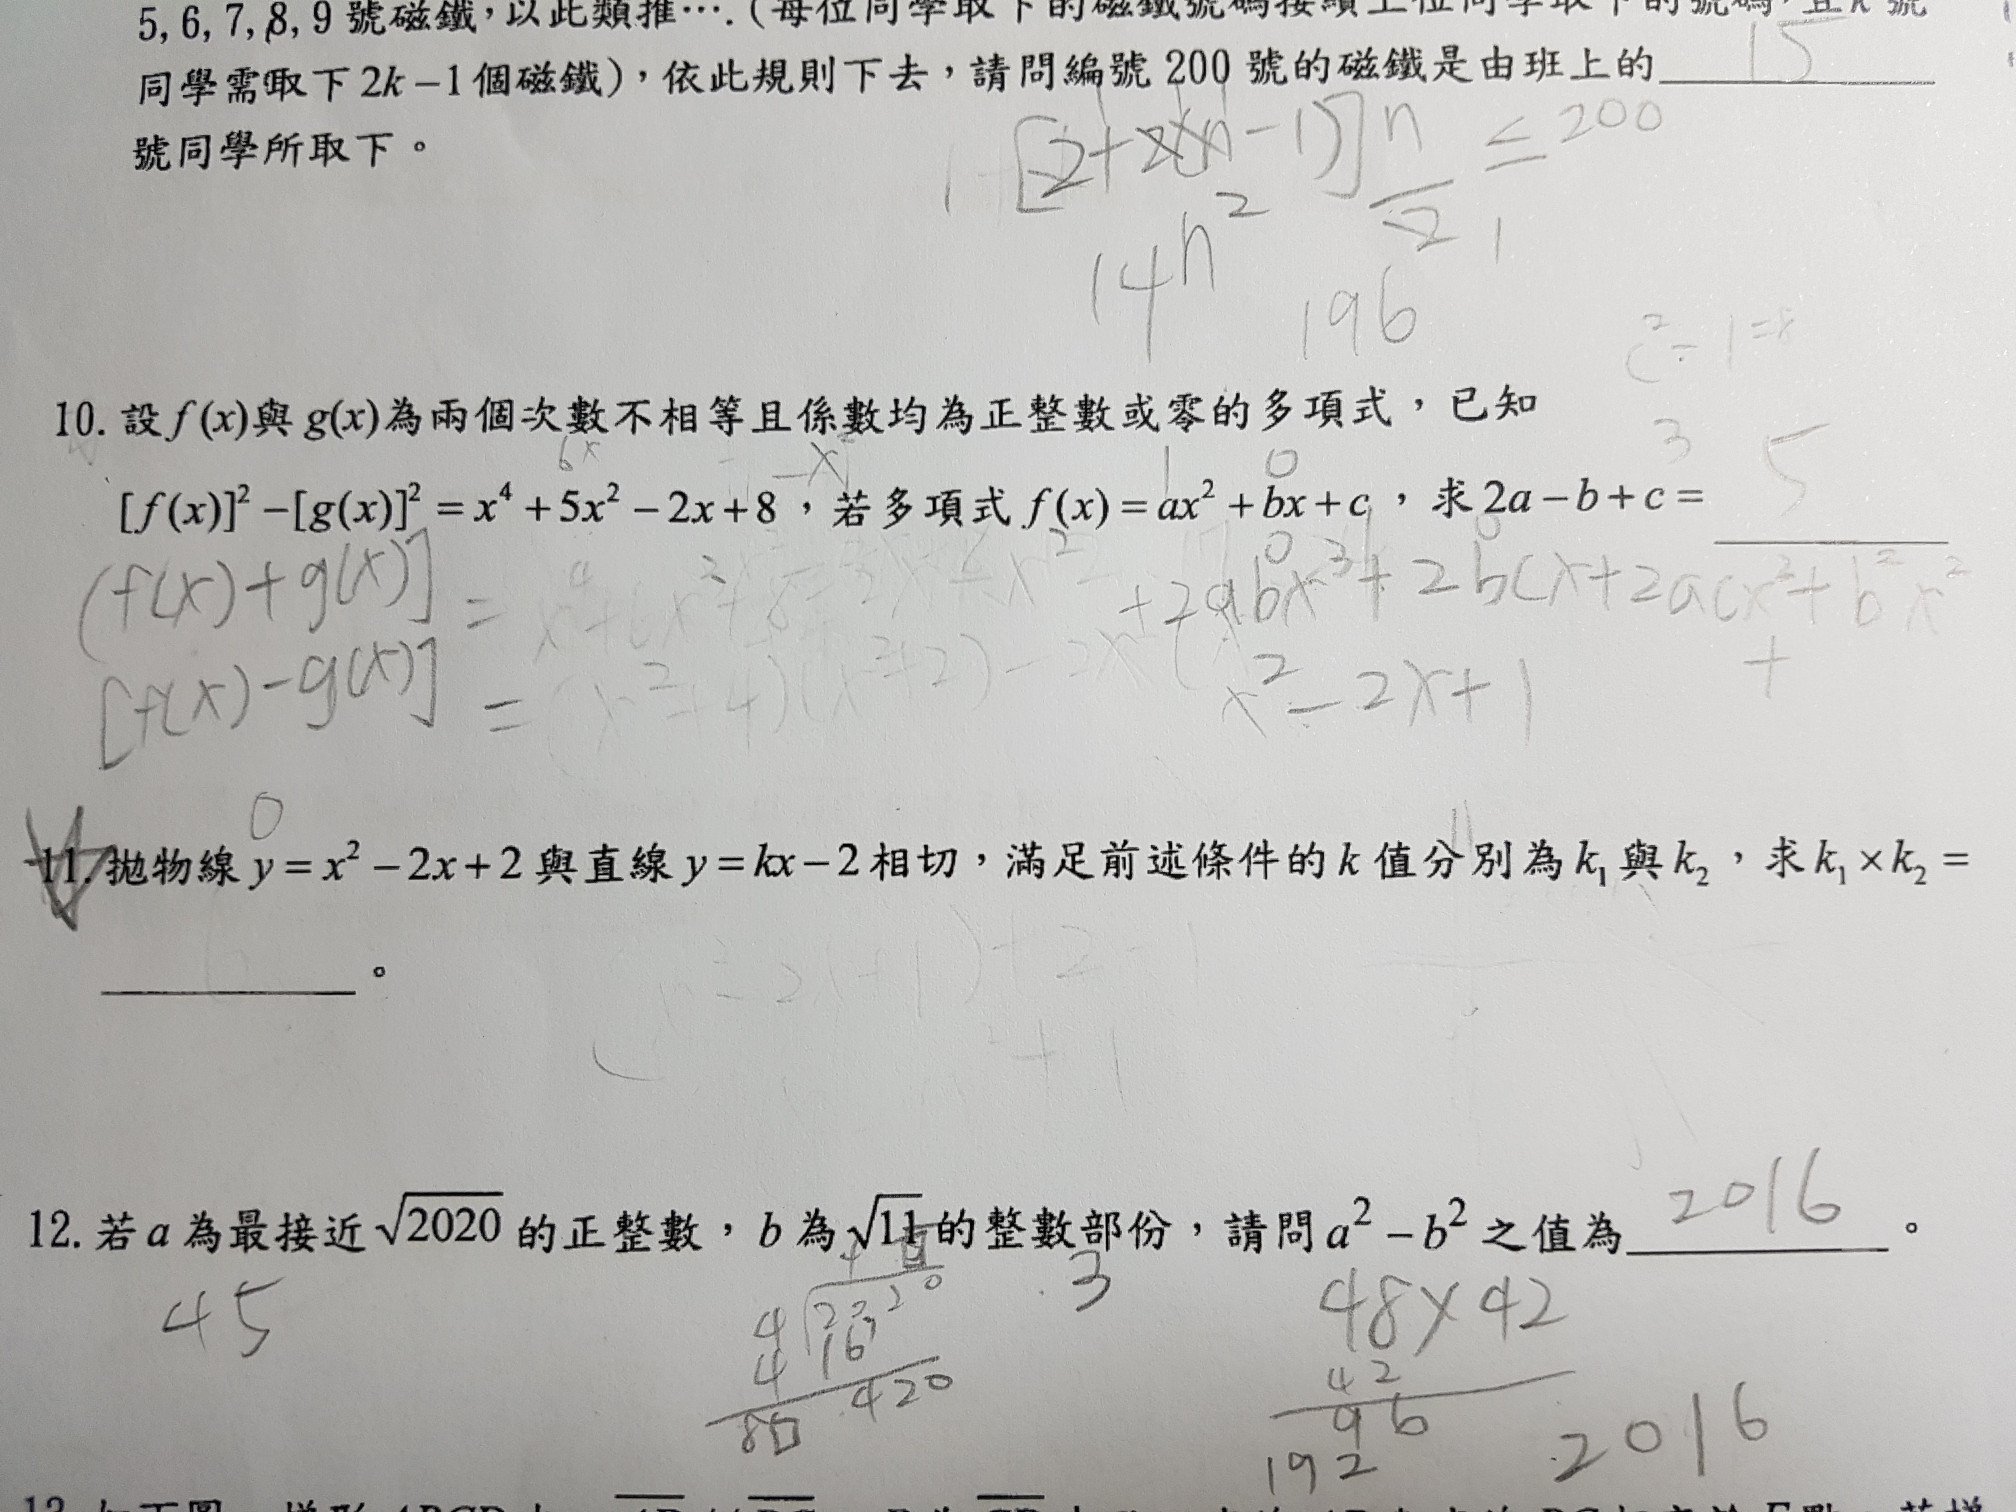 5, 6, 7, 8, 9 號磁鐵,以此類推…. (每位同學取下的磁鐵號碼接續上位同學取下的號碼,且 k 號
同學需取下 2k−1 個磁鐵),依此規則下去,請問編號 200 號的磁鐵是由班上的 15
號同學所取下。
[2+2(n−1)]n/2 ≤ 200
14 n²
196
10. 設 f(x) 與 g(x) 為兩個次數不相等且係數均為正整數或零的多項式,已知
3
[f(x)]² − [g(x)]² = x⁴ + 5x² − 2x + 8,若多項式 f(x) = ax² + bx + c,求 2a − b + c = 5
(f(x)+g(x)] = +2abx³+2bcx+2acx²+b²x²
[f(x)−g(x)] = (x²+4)(x²+2)−2x x²−2x+1
0
11. 拋物線 y = x² − 2x + 2 與直線 y = kx − 2 相切,滿足前述條件的 k 值分別為 k₁ 與 k₂,求 k₁ × k₂ =
。
12. 若 a 為最接近 √2020 的正整數,b 為 √11 的整數部份,請問 a² − b² 之值為 2016 。
45
3
48×42
4 2020
4 16
42
80 420
96
192
2016